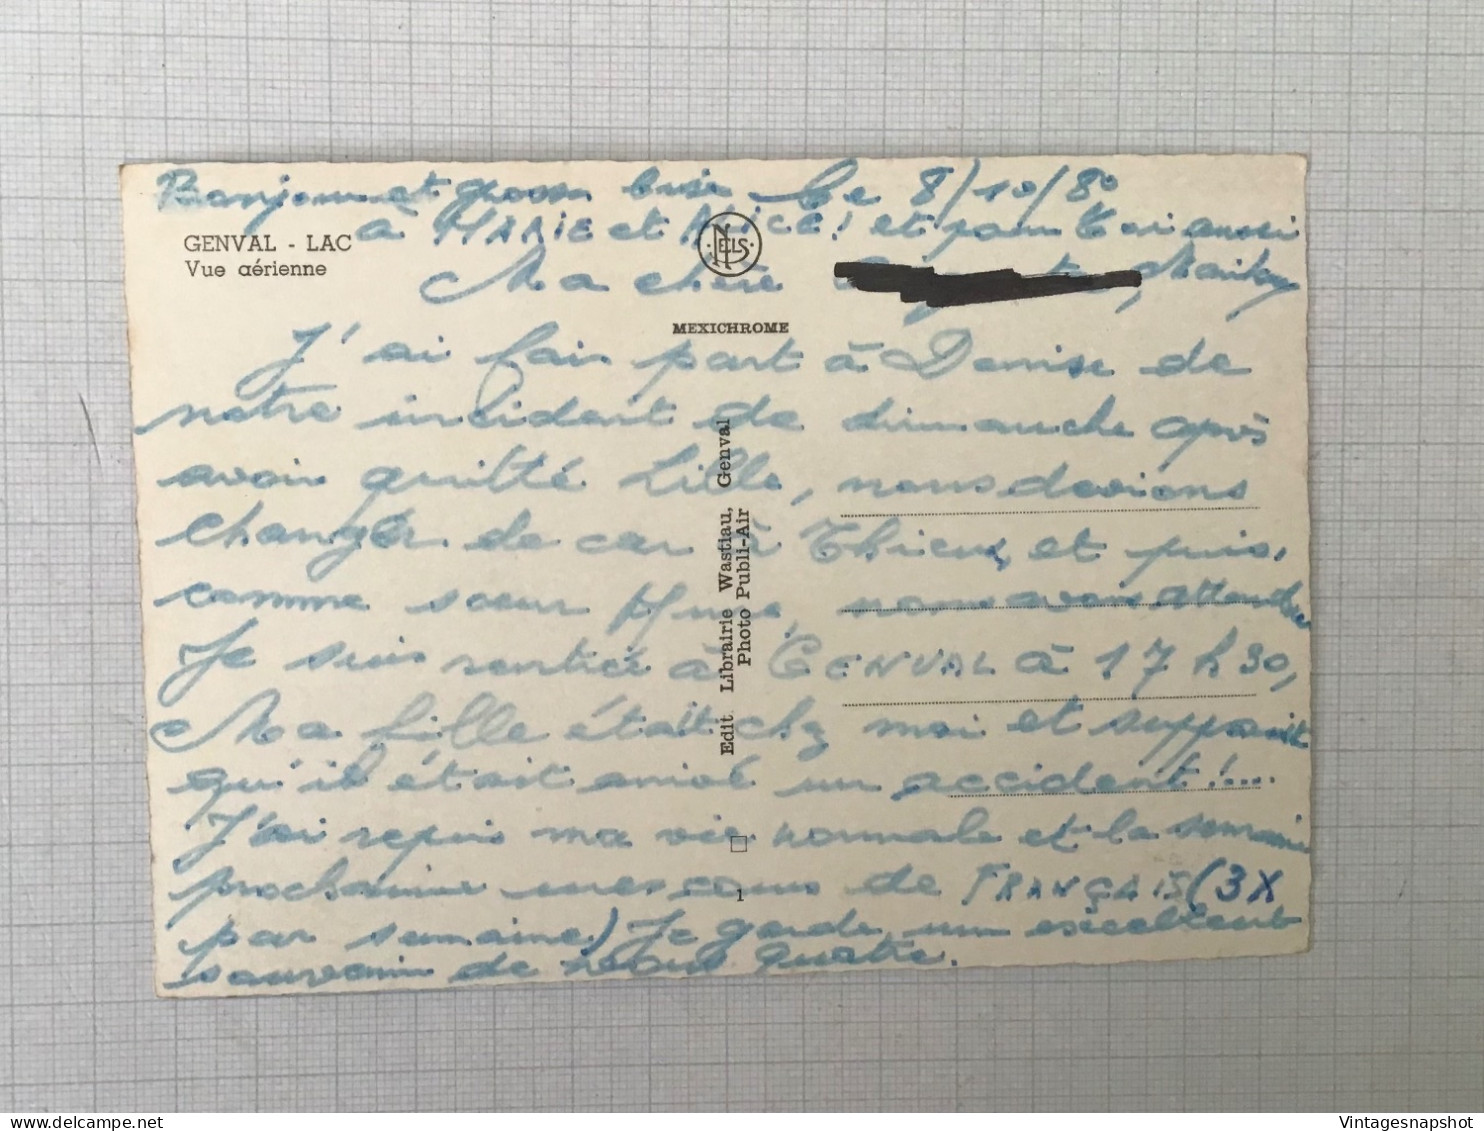 Bonjour et grosses bises Le 8/10/80
à MARIE et ALICE! et pour toi aussi
GENVAL - LAC
Vue aérienne
NELS
Ma chère
MEXICHROME
J'ai fair part à Denise de
notre incident de dimanche après
avoir quitté Lille, nous devions
changer de car à Thieu, et puis,
comme sœur Anne, nous avons attendu
Je suis rentrée à GENVAL à 17 h 30,
Ma fille était chez moi et supposait
qu'il était arrivé un accident!....
J'ai repris ma vie normale et la semaine
prochaine mes cours de FRANÇAIS (3X
par semaine) Je garde un excellent
souvenir de nous quatre.
Edit. Librairie Wastiau, Genval
Photo Publi-Air
1
Vintagesnapshot